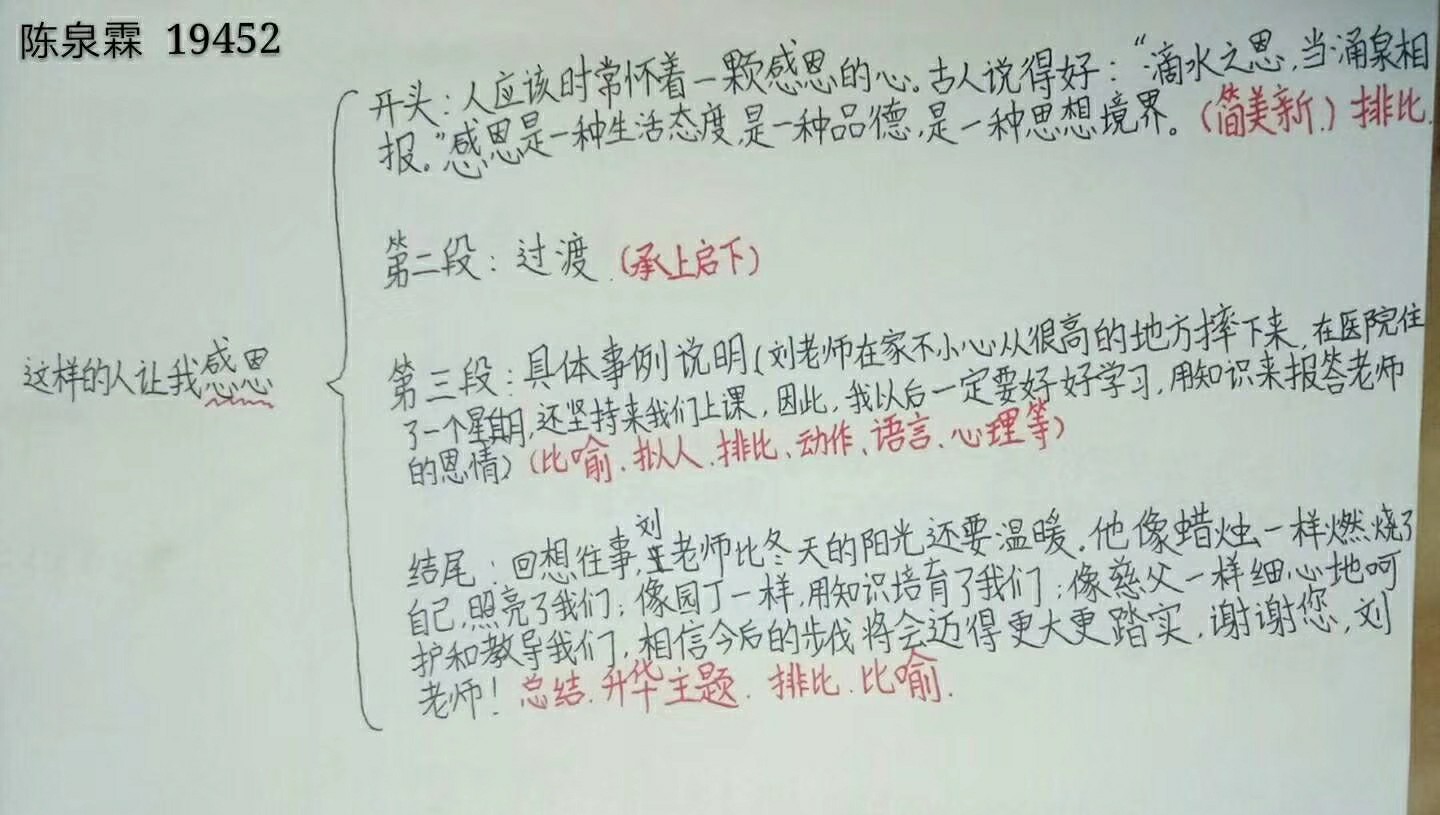 陈泉霖 19452
开头：人应该时常怀着一颗感恩的心。古人说得好：“滴水之恩，当涌泉相
报。”感恩是一种生活态度，是一种品德，是一种思想境界。（简美新）排比.
第二段：过渡.（承上启下）
这样的人让我感恩
第三段：具体事例说明（刘老师在家不小心从很高的地方摔下来，在医院住
了一个星期，还坚持来我们上课，因此，我以后一定要好好学习，用知识来报答老师
的恩情）（比喻、拟人、排比、动作、语言、心理等）
刘
结尾：回想往事，王老师比冬天的阳光还要温暖。他像蜡烛一样燃烧了
自己，照亮了我们；像园丁一样，用知识培育了我们；像慈父一样细心地呵
护和教导我们，相信今后的步伐将会迈得更大更踏实，谢谢您，刘
老师！总结.升华主题.排比.比喻.